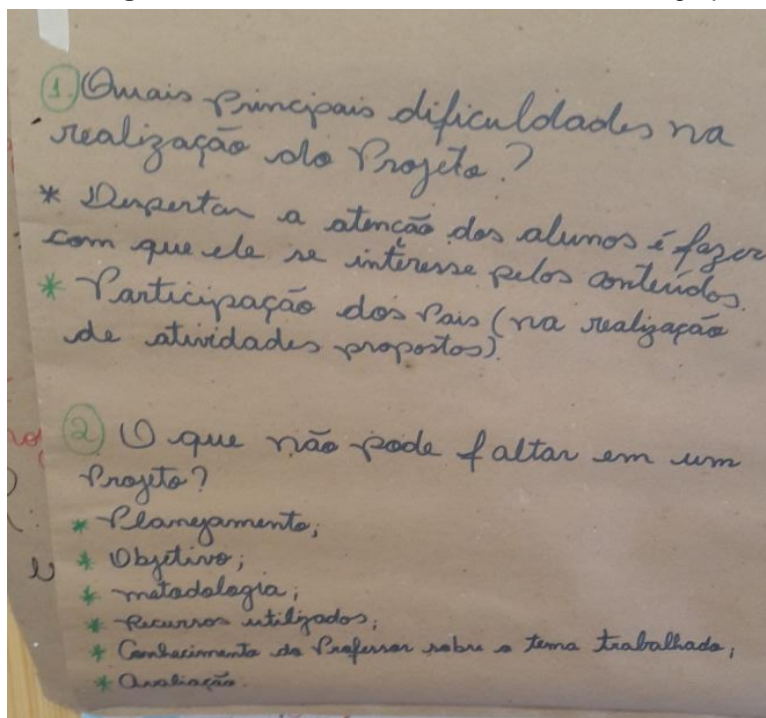 1. Quais Principais dificuldades na
realização do Projeto?
* Despertar a atenção dos alunos é fazer
com que ele se interesse pelos conteúdos.
* Participação dos Pais (na realização
de atividades propostos).
2 O que não pode faltar em um
Projeto?
* Planejamento;
* Objetivo;
* metodologia;
* Recursos utilizados;
* Conhecimento do Professor sobre o tema trabalhado;
* Avaliação.